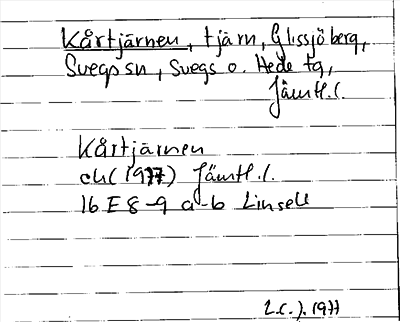 Kårtjärnen, tjärn, Glissjöberg,
Svegs sn, Svegs o. Hede tg,
Jämtl. l.
Kårtjärnen
ch (1977) Jämtl. l.
16 E 8-9 a-b Linsell
L.C.J. 1977